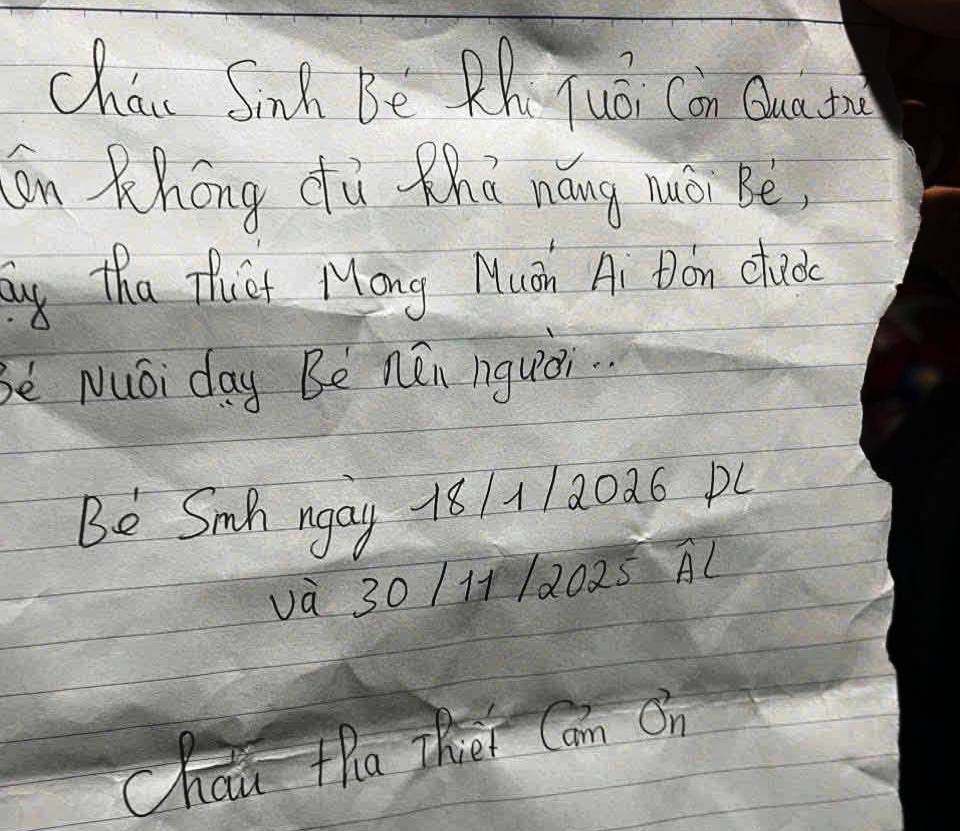 Cháu Sinh Bé khi Tuổi Còn Quá trẻ
lên không đủ khả năng nuôi Bé,
tha Thiết Mong Muốn Ai Đón được
Bé Nuôi dạy Bé nên người..
Bé Sinh ngày 18/1/2026 DL
và 30/11/2025 ÂL
Cháu tha Thiết Cảm Ơn